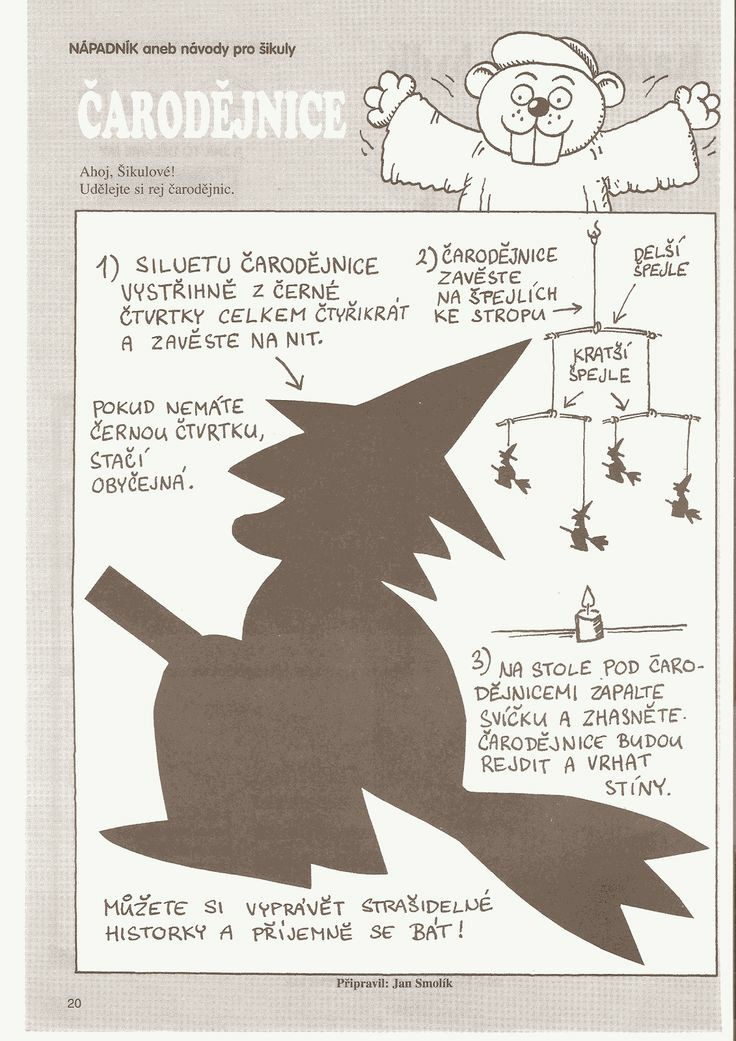 NÁPADNÍK aneb návody pro šikuly
ČARODĚJNICE
Ahoj, Šikulové!
Udělejte si rej čarodějnic.
1) SILUETU ČARODĚJNICE
VYSTŘIHNĚ Z ČERNÉ
ČTVRTKY CELKEM ČTYŘIKRÁT
A ZAVĚSTE NA NIT.
POKUD NEMÁTE
ČERNOU ČTVRTKU,
STAČÍ
OBYČEJNÁ.
2) ČARODĚJNICE
ZAVĚSTE
NA ŠPEJLÍCH
KE STROPU
DELŠÍ
ŠPEJLE
KRATŠÍ
ŠPEJLE
3) NA STOLE POD ČARO-
DĚJNICEMI ZAPALTE
SVÍČKU A ZHASNĚTE.
ČARODĚJNICE BUDOU
REJDIT A VRHAT
STÍNY.
MŮŽETE SI VYPRÁVĚT STRAŠIDELNÉ
HISTORKY A PŘÍJEMNĚ SE BÁT!
Připravil: Jan Smolík
20